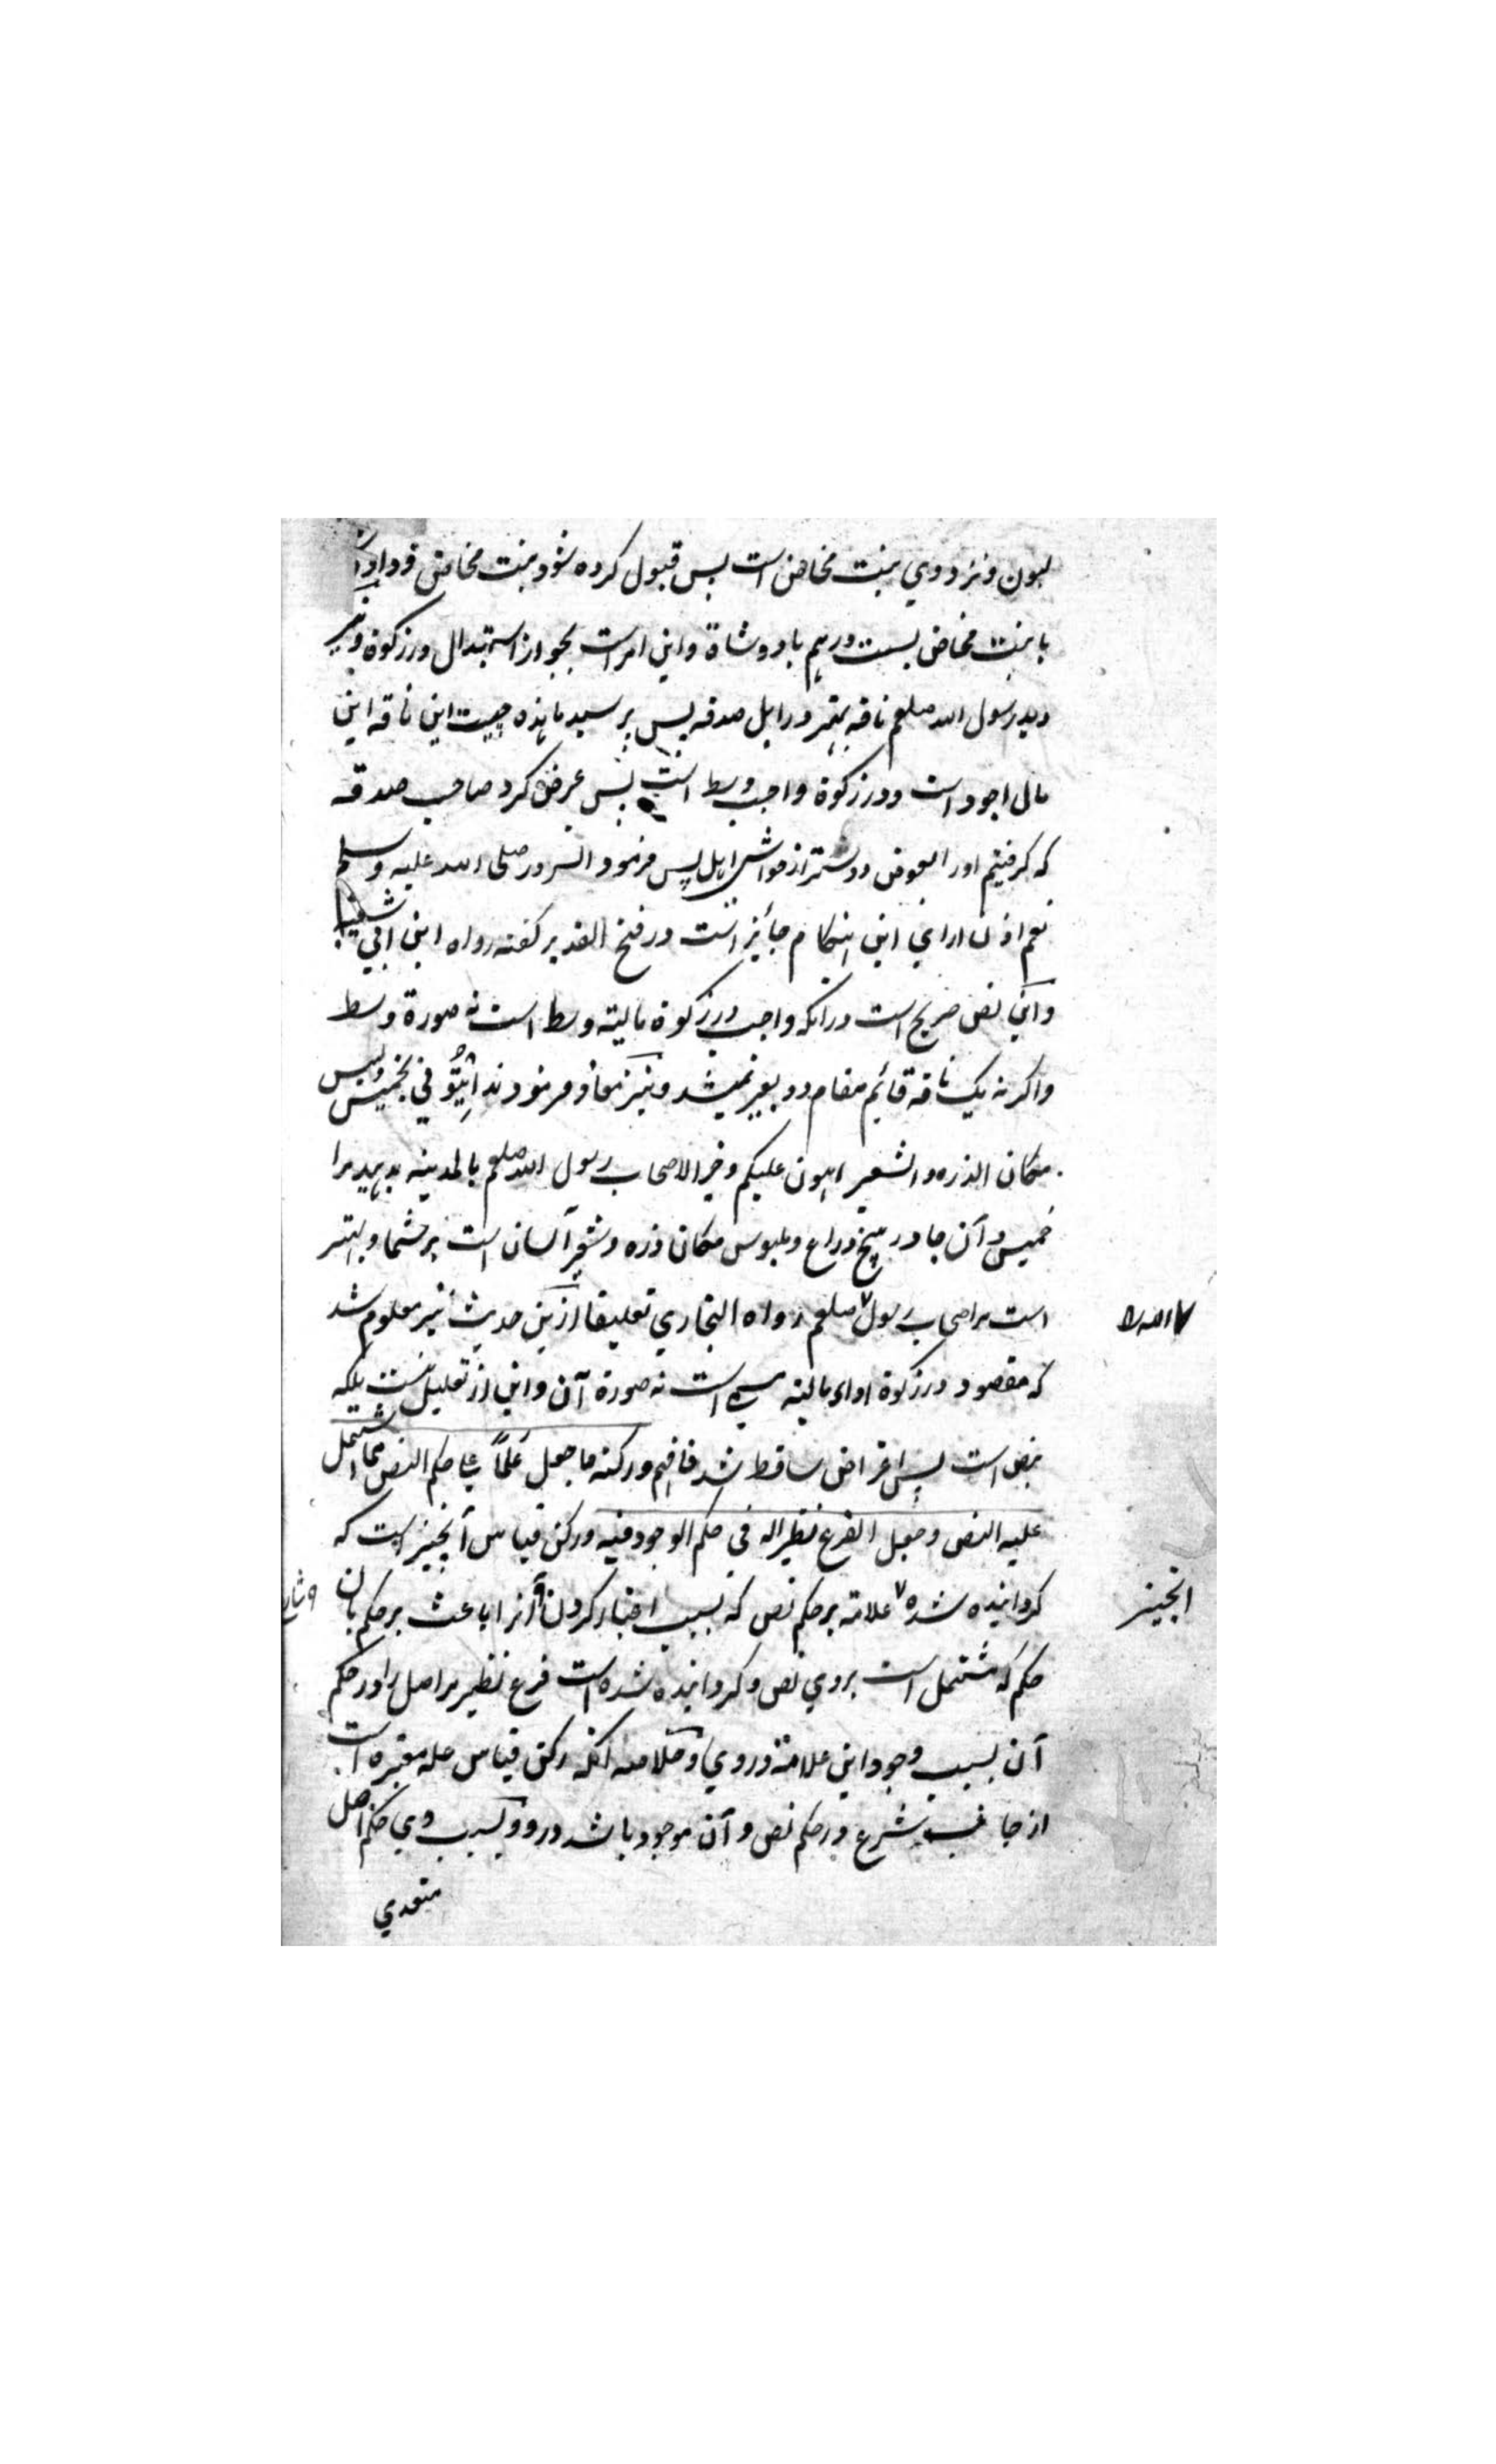 لبون ونزد وي بنت مخاض است پس قبول کرده شود بنت مخاض و داده
با بنت مخاض بست درهم یا دو شاة واین امر است بجواز استبدال در زکوة ونیز
دید رسول الله صلعم ناقه در ابل صدقه پس پرسید ما هذه چیست این ناقه این
مال اجود است ودر زکوة واجب وسط است پس عرض کرد صاحب صدقه
که گرفتیم اورا بعوض دو شتر از حواشی ابل پس فرمود آنسرور صلی الله علیه وسلم
نعم اذن این هنکام جایز است در فتح القدیر گفته رواه ابن ابي شیبة
واین نص صریح است درانکه واجب در زکوة مالیة وسط است نه صورة وسط
واگرنه یک ناقه قائم مقام دو بعیر نمیشد ونیز معاذ فرمودند ائتوني بخمیس ولبیس
مکان الذره والشعیر اهون علیکم وخیر لاصحاب رسول الله صلعم بالمدینه بدهید مرا
خمیس وآن جادر پنج ذراع وملبوس مکان ذره وشعیر آسان است بر شما وبهتر
است مر اصحاب رسول صلعم رواه البخاري تعلیقا ازین حدیث نیز معلوم شد
الله را
که مقصود در زکوة اداء مالیة است نه صورة آن واین از تعلیل نیست بلکه
بنص است پس اعراض ساقط شد فافهم ورکنه ما جعل علماً علی حکم النص مما اشتمل
علیه النص وجعل الفرع نظیرا له في حکم الوجوده فیه ورکن قیاس آنچیز است که
گردانیده شده علامة بر حکم نص که بسبب اعتبار کردن آنرا باعث بر حکم بآن
انچیز
شارع
حکم که مشتمل است بروي نص وگردانیده شده است فرع نظیر مر اصل را در حکم
آن بسبب وجود این علامة دروي وخلاصه آنکه رکن قیاس علة معتبره است
از جانب شرع در حکم نص وآن موجود باشد در وبسبب وي حکم اصل
متعدي